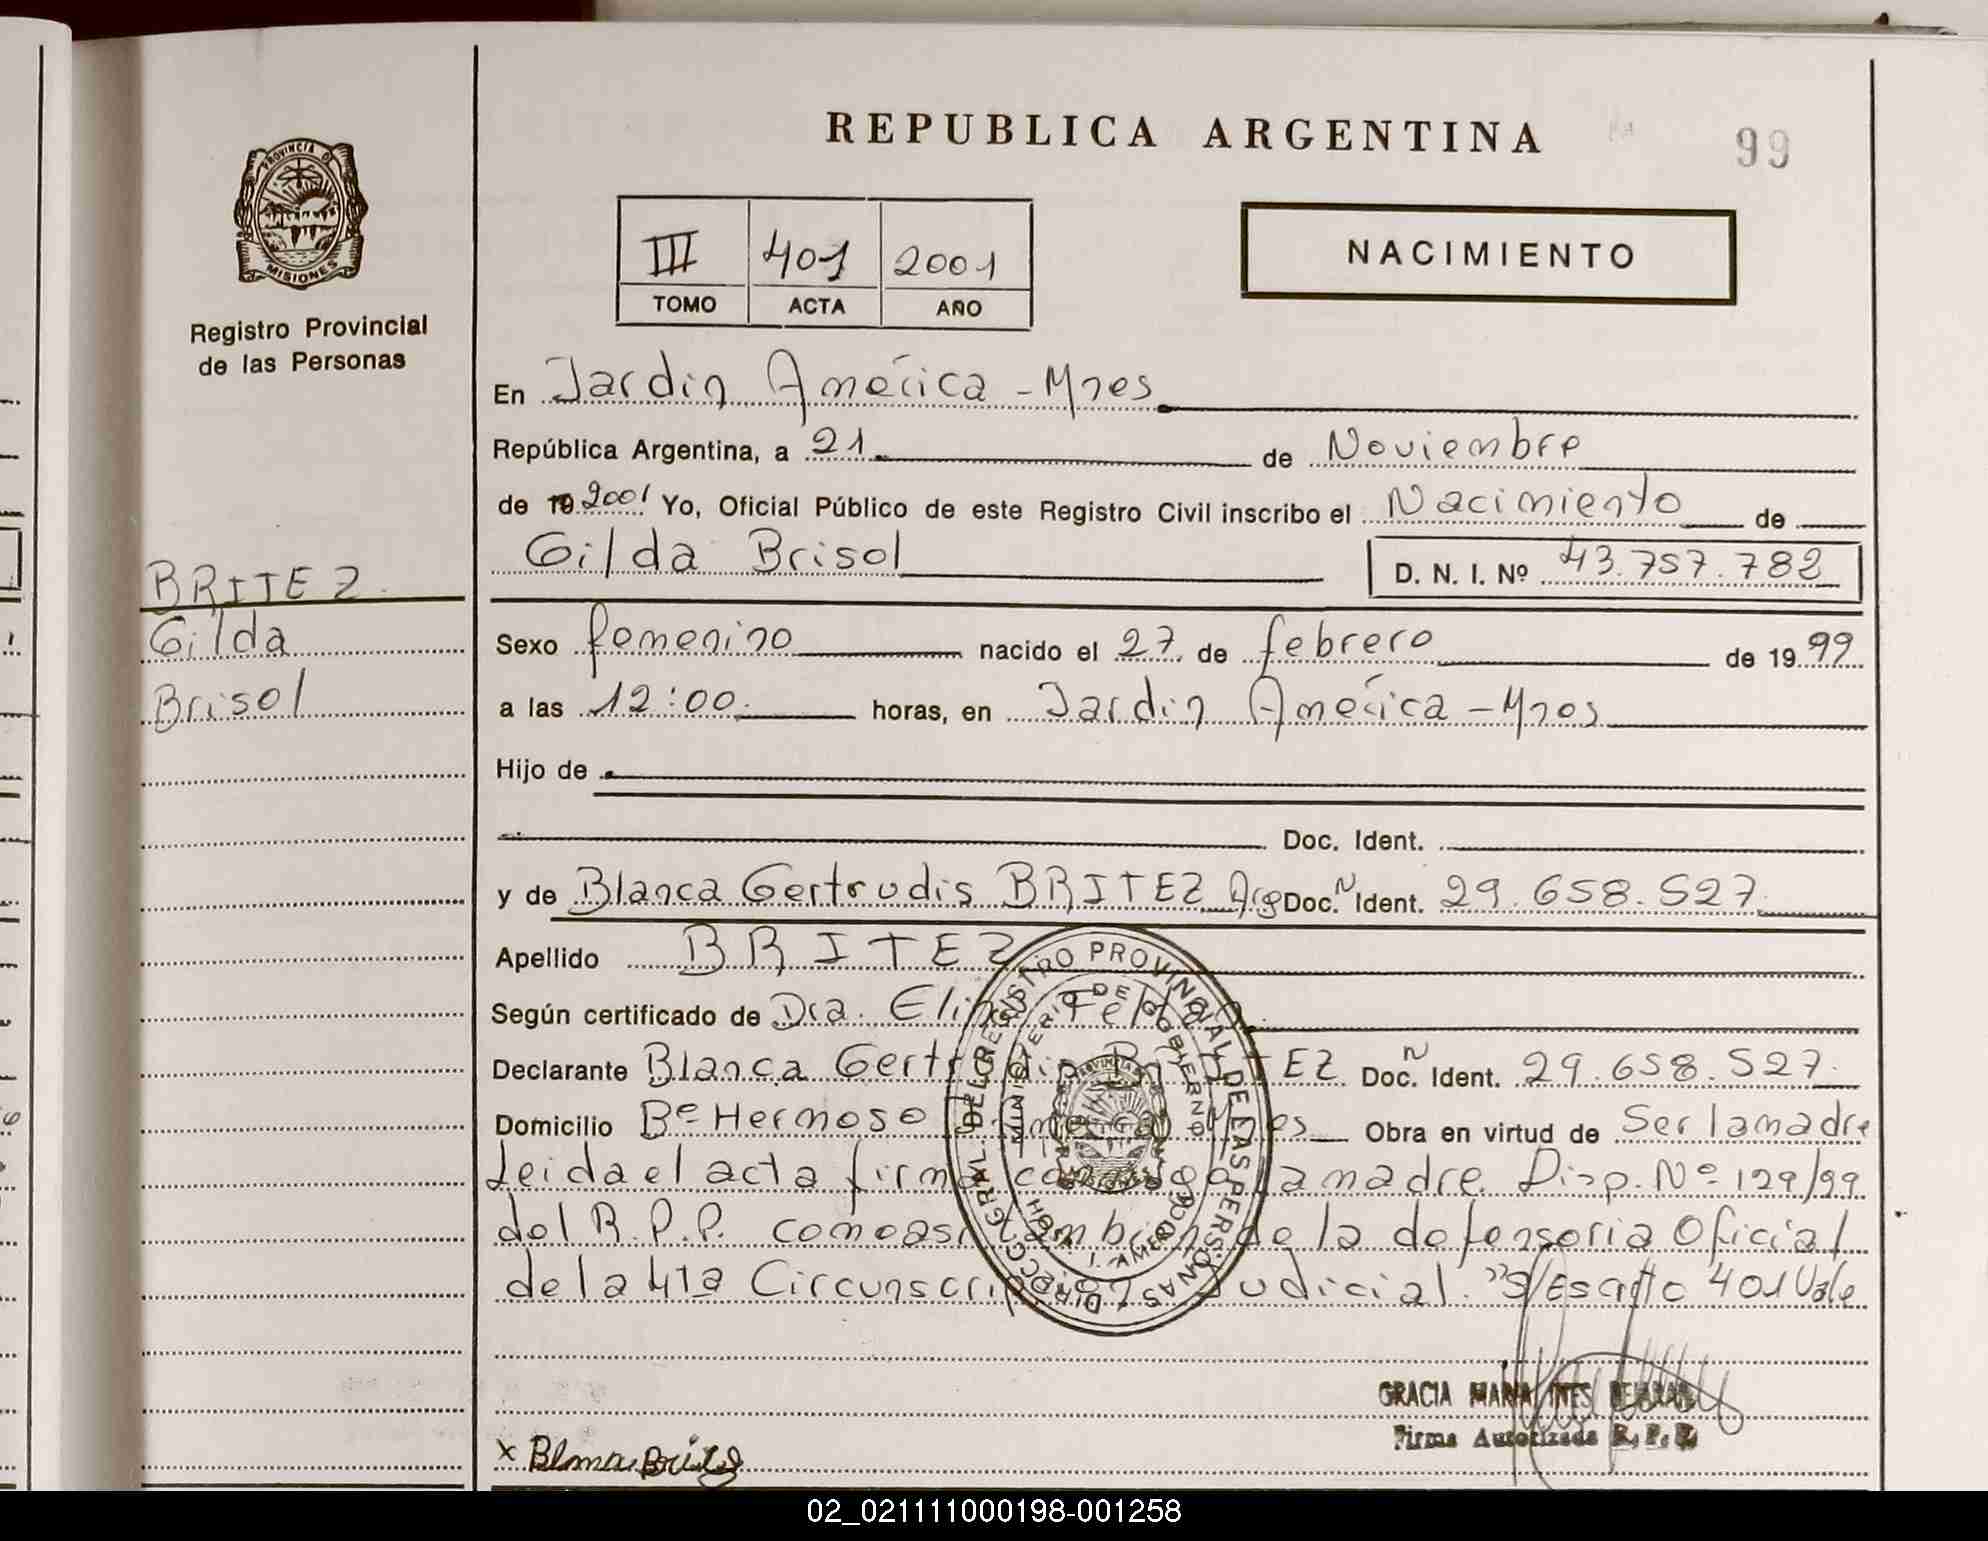 REPUBLICA ARGENTINA
99
PROVINCIA DE
MISIONES
Registro Provincial
de las Personas
III 401 2001
TOMO ACTA AÑO
NACIMIENTO
En Jardin América - Mnes
República Argentina, a 21 de Noviembre
de 19 2001 Yo, Oficial Público de este Registro Civil inscribo el Nacimiento de
Gilda Brisol D. N. I. Nº 43.757.782
BRITEZ
Gilda
Brisol
Sexo femenino nacido el 27 de febrero de 1999
a las 12:00 horas, en Jardin América - Mnes
Hijo de
Doc. Ident.
y de Blanca Gertrudis BRITEZ Arg Doc. N Ident. 29.658.527
Apellido BRITEZ
Según certificado de Dra.
Declarante Blanca Gertrudis BRITEZ Doc. N Ident. 29.658.527
Domicilio Bº Hermoso Mnes Obra en virtud de Ser la madre
Leida el acta firma la madre. Disp. Nº 129/99
del R.P.P. como asi tambien de la defensoria Oficial
de la 4ta Circunscripción Judicial. "S/Escrito 401 Vale
DIRECC. GRAL. DEL REGISTRO PROVINCIAL DE LAS PERSONAS
MINISTERIO DE GOBIERNO
GRACIA MARIA INES
Firma Autorizada R. P. P.
x Blanca Britez
02_021111000198-001258